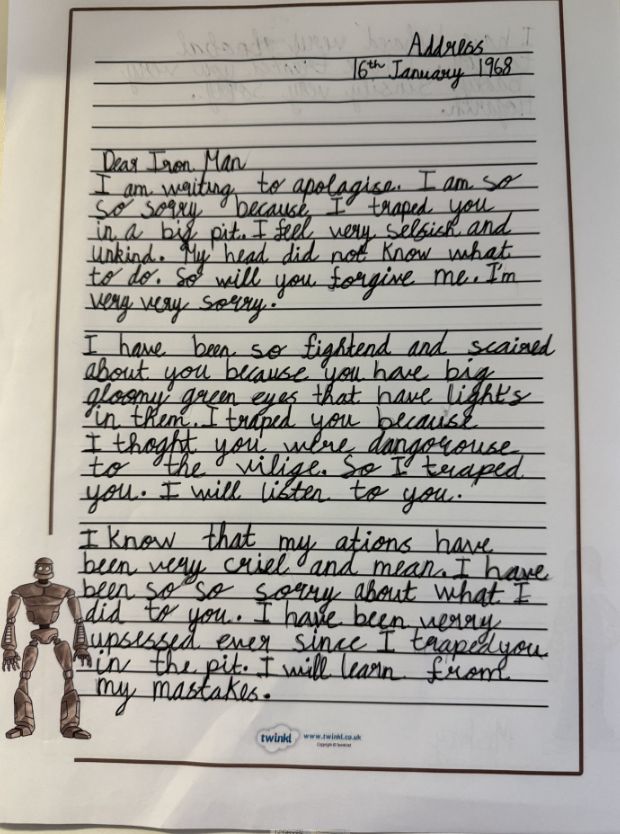 Address
16th January 1968
Dear Iron Man
I am writing to apolagise. I am so
so sorry because I traped you
in a big pit. I feel very selfish and
unkind. My head did not know what
to do. So will you forgive me. I'm
very very sorry.
I have been so fightend and scaired
about you because you have big
gloomy green eyes that have light's
in them. I traped you because
I thoght you were dangorouse
to the vilige. So I traped
you. I will listen to you.
I know that my ations have
been very criel and mean. I have
been so so sorry about what I
did to you. I have been verry
upsessed ever since I traped you
in the pit. I will learn from
my mastakes.
twinkl www.twinkl.co.uk